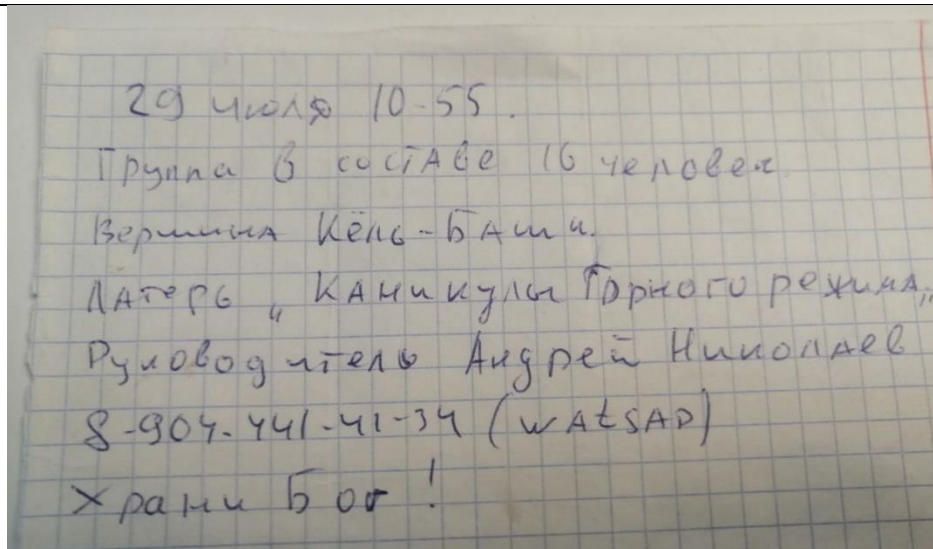 29 июля 10-55.
Группа в составе 16 человек
Вершина Кёль-Баши.
Лагерь „Каникулы Горного режима„
Руководитель Андрей Николаев
8-904-441-41-34 (watsap)
Храни Бог!